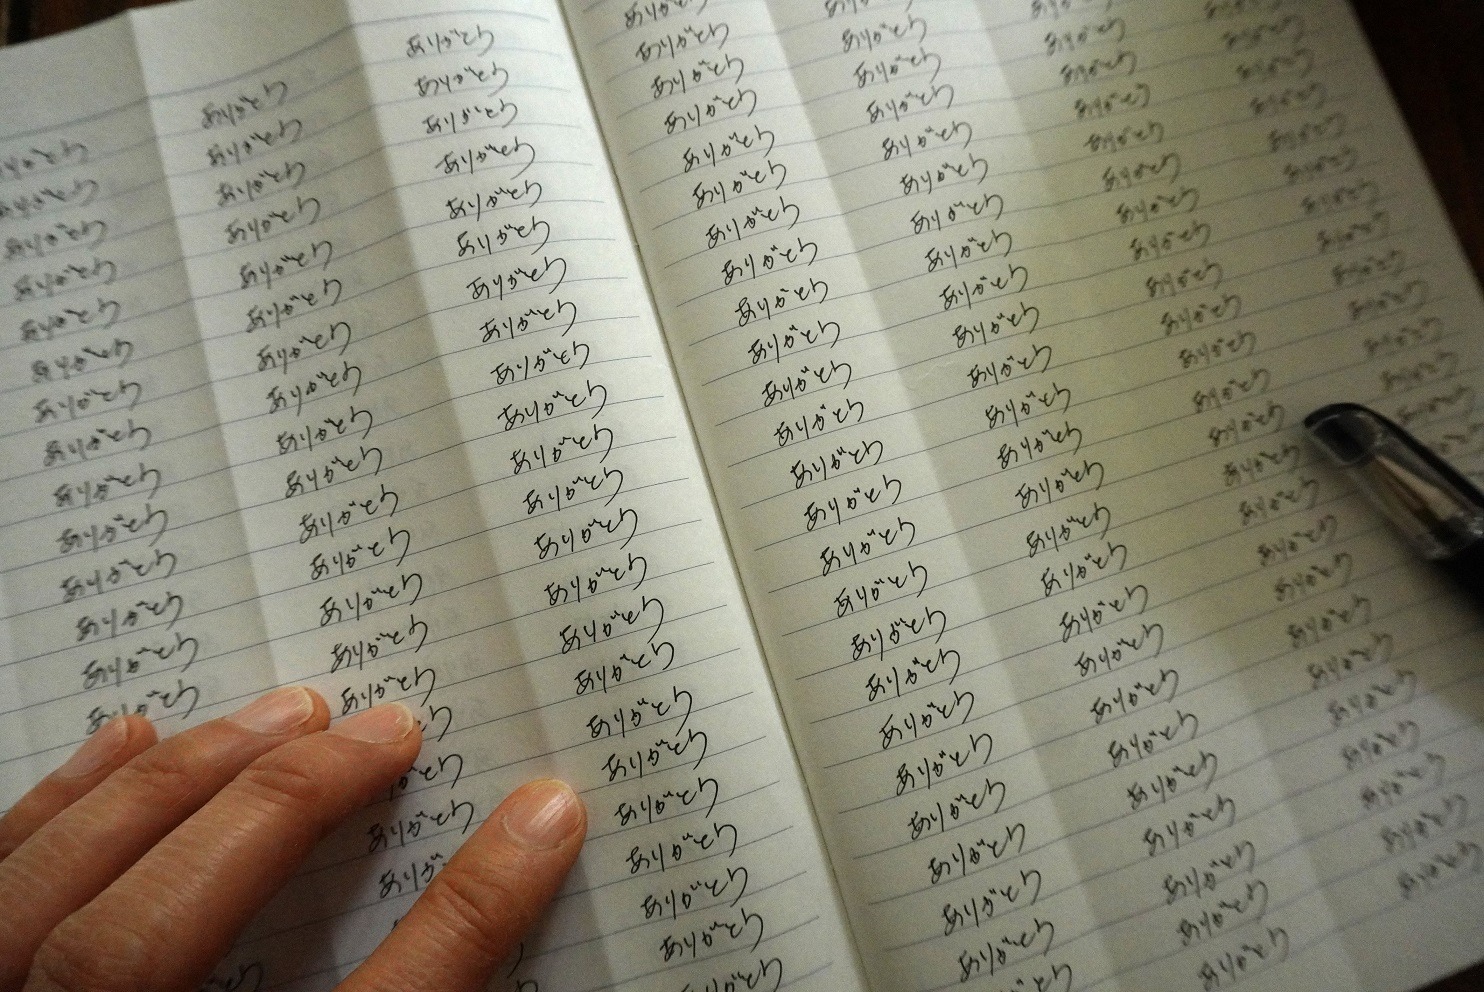 ありがとう ありがとう ありがとう
ありがとう ありがとう ありがとう
ありがとう ありがとう ありがとう
ありがとう ありがとう ありがとう
ありがとう ありがとう ありがとう
ありがとう ありがとう ありがとう
ありがとう ありがとう ありがとう
ありがとう ありがとう ありがとう
ありがとう ありがとう ありがとう
ありがとう ありがとう ありがとう
ありがとう ありがとう ありがとう
ありがとう ありがとう ありがとう
ありがとう ありがとう ありがとう
ありがとう ありがとう ありがとう
ありがとう ありがとう
ありがとう
ありがとう
ありがとう ありがとう
ありがとう
ありがとう
ありがとう
ありがとう
ありがとう
ありがとう ありがとう ありがとう ありがとう
ありがとう ありがとう ありがとう ありがとう
ありがとう ありがとう ありがとう ありがとう
ありがとう ありがとう ありがとう ありがとう
ありがとう ありがとう ありがとう ありがとう
ありがとう ありがとう ありがとう ありがとう
ありがとう ありがとう ありがとう ありがとう
ありがとう ありがとう ありがとう ありがとう
ありがとう ありがとう ありがとう ありがとう
ありがとう ありがとう ありがとう ありがとう
ありがとう ありがとう ありがとう ありがとう
ありがとう ありがとう ありがとう ありがとう
ありがとう ありがとう ありがとう
ありがとう ありがとう ありがとう
ありがとう ありがとう ありがとう
ありがとう ありがとう ありがとう
ありがとう ありがとう ありがとう
ありがとう ありがとう ありがとう
ありがとう ありがとう ありがとう
ありがとう ありがとう ありがとう
ありがとう ありがとう ありがとう
ありがとう ありがとう ありがとう
ありがとう ありがとう ありがとう
ありがとう ありがとう